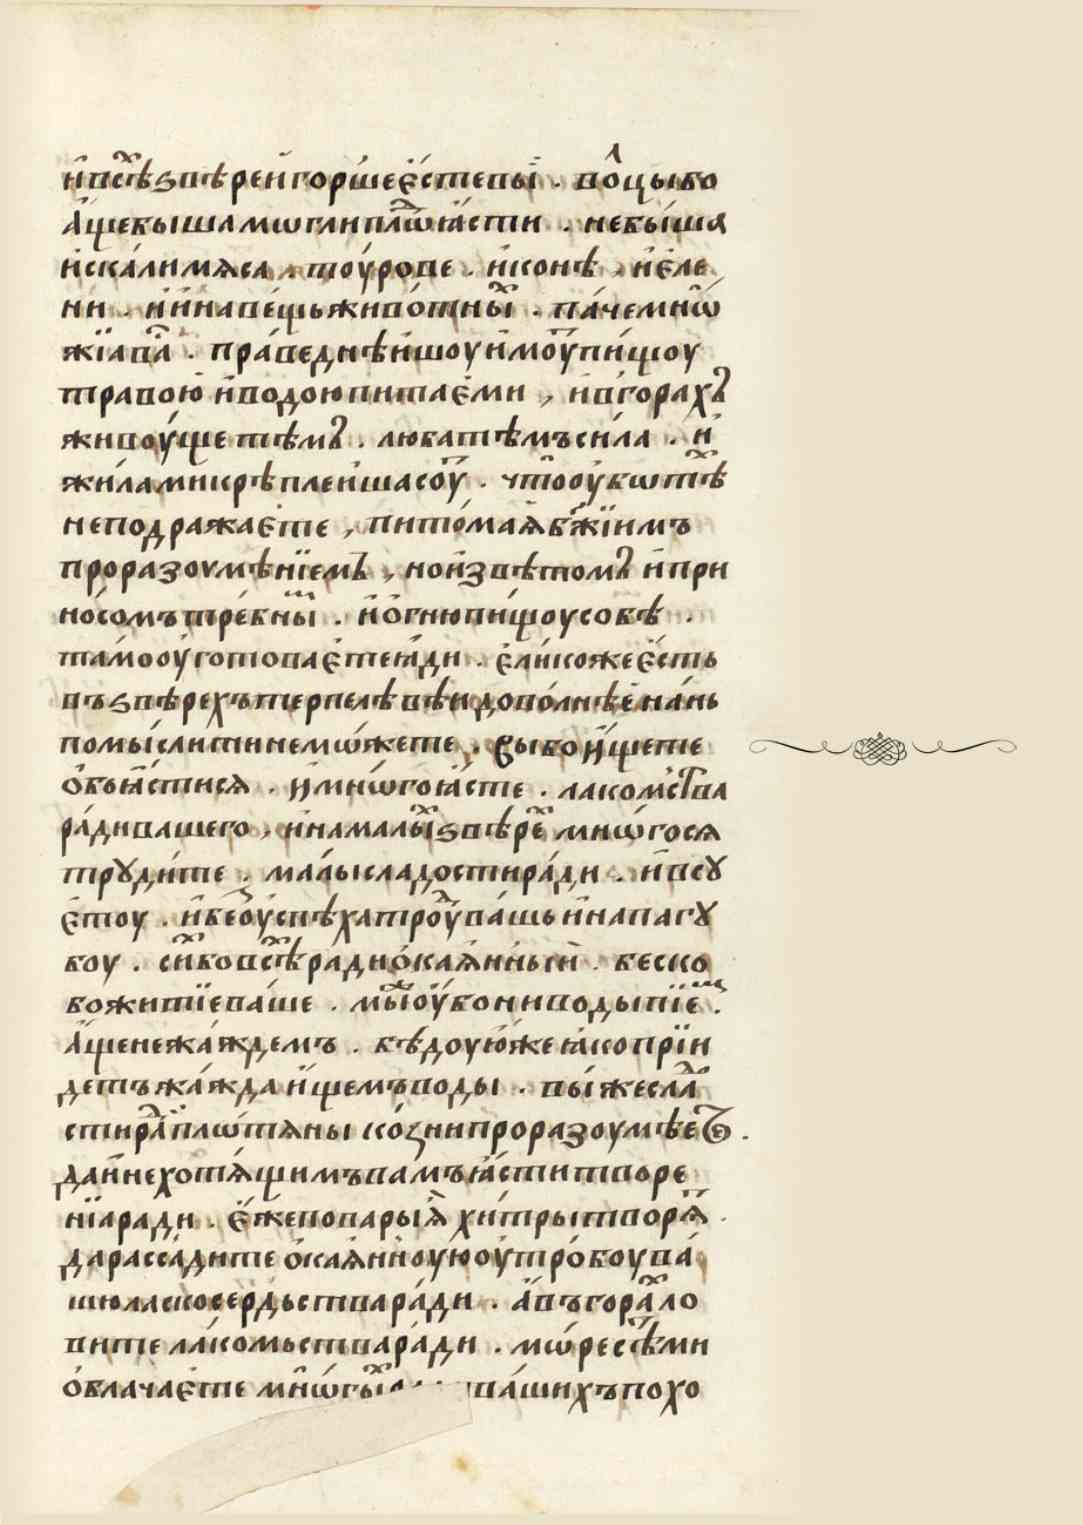 и҆всѣ́хѕвѣ́рейго́ршеє҆́стевы̀ . во́лцыбо
а҆́щебышамоглипло́дꙗ҆́сти . небы́шѧ
и҆ска́лимѧса . тоу́рове . и҆́конѣ . и҆є҆ле
ни . и҆и҆́наве́щьживо́тных . па́чемнѡ
жїавл҃ . пра́веднѣйшоуи҆моу́щпи́щоу
травоюи҆водоюпитає҆ми , и҆вгорахꙋ
живоу́щетѣмꙋ . любатѣмъси́ла . и҆
жи́ламикрѣплейшасоу́т . чтооу҆бѡтѣх
неподражає҆те , пито́маѧбж҃їимъ
проразоумѣнїемъ , нои҆звѣтомꙋ и҆при
но́сомътре́бным . и҆о҆гнюпи́щоусобѣ .
та́мооу҆готоваєтеꙗ҆́ди . є҆ликожеє҆́сть
въѕвѣрехътерпелѣвѣидово́лнѣєна́нь
помы́слитинемѡ́жете . вы́боищете
о҆бъꙗ҆́стисѧ . и҆мнѡ́гоꙗ҆сте . лакомства
ра́дивашего . и҆нималыхѕвѣрех мнѡ́госѧ
трꙋди́те . ма́лысладостира́ди . и҆всꙋ
є҆тоу . и҆безоуспѣхатроу́два́шьи҆напагꙋ
боу . си́хбовсѣхрадио҆каѧ́нный . беско
вожитїева́ше . мы́жоу҆бониводыпїем .
а҆́щенежа́ждемъ . бѣдоую҆́жеꙗ҆коприи
детъжа́ждаи҆щемъводы . вы́жесла́
стира́дплѡ́тѧны ко́зниипроразоумѣеⷮ .
дай нехотѧ́щимъвамъꙗ҆́ститворе
нїаради . є҆жеповарыѧ̀ хи́трытворѧ .
дарасса́дите о҆каѧ́нноуюоу҆тро́боува́
шюласкосе́рдьствара́ди . а҆въгора́хло
вителáкомьствара́ди . мѡ́ресѣ́тми
о҆блачає҆те мнѡ́гых ва́шихъпохо